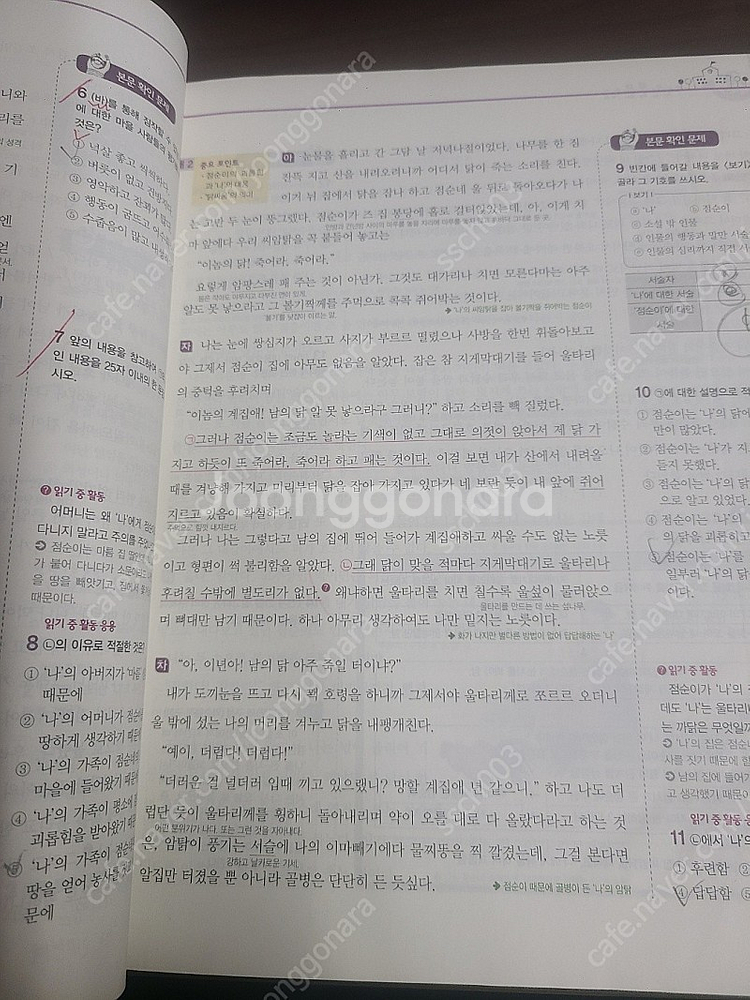 니와
리를
의 성격
기
본문 확인 문제
6 (바)를 통해 짐작할 수
에 대한 마을 사람들의
것은?
① 넉살 좋고 씩씩하다
② 버릇이 없고 건방지다
③ 영악하고 잔꾀가 많다
④ 행동이 굼뜨고
⑤ 수줍음이 많고
7 앞의 내용을 참고하여
인 내용을 25자 이내의 한
시오.
읽기 중 활동
어머니는 왜 '나'에게 점순이
다니지 말라고 주의를 주었는
점순이는 마름 집 딸인데
가 붙어 다니다가 소문이
을 땅을 빼앗기고, 집에서 쫓겨
때문이다.
읽기 중 활동 응용
8 ㉡의 이유로 적절한 것은
① '나'의 아버지가 '마름
때문에
② '나'의 어머니가 점순
땅하게 생각하기 때문
③ '나'의 가족이 점순네
마을에 들어왔기 때문
④ '나'의 가족이 평소에
괴롭힘을 받아왔기 때문
⑤ '나'의 가족이 점순네
땅을 얻어 농사를
문에
2 중요 포인트
· 점순이의 괴롭힘
과 '나'의 대응
· '닭싸움'의 의미
아 눈물을 흘리고 간 그담 날 저녁나절이었다. 나무를 한 짐
잔뜩 지고 산을 내려오려니까 어디서 닭이 죽는 소리를 친다.
이거 뉘 집에서 닭을 잡나 하고 점순네 울 뒤로 돌아오다가 나
는 고만 두 눈이 뚱그랬다. 점순이가 즈 집 봉당에 홀로 걸터앉았는데, 아, 이게 치
안방과 건넌방 사이의 마루를 놓을 자리에 마루를 놓지 않고 흙바닥 그대로 둔 곳.
마 앞에다 우리 씨암탉을 꼭 붙들어 놓고는
"이놈의 닭! 죽어라, 죽어라."
요렇게 암팡스레 패 주는 것이 아닌가. 그것도 대가리나 치면 모른다마는 아주
몸은 작아도 야무지고 다부진 면이 있게.
알도 못 낳으라고 그 볼기짝께를 주먹으로 콕콕 쥐어박는 것이다.
'볼기'를 낮잡아 이르는 말.
➔ '나'의 씨암탉을 잡아 볼기짝을 쥐어박는 점순이
자 나는 눈에 쌍심지가 오르고 사지가 부르르 떨렸으나 사방을 한번 휘돌아보고
야 그제서 점순이 집에 아무도 없음을 알았다. 잡은 참 지게막대기를 들어 울타리
의 중턱을 후려치며
"이놈의 계집애! 남의 닭 알 못 낳으라구 그러니?" 하고 소리를 빽 질렀다.
㉠그러나 점순이는 조금도 놀라는 기색이 없고 그대로 의젓이 앉아서 제 닭 가
지고 하듯이 또 죽어라, 죽어라 하고 패는 것이다. 이걸 보면 내가 산에서 내려올
때를 겨냥해 가지고 미리부터 닭을 잡아 가지고 있다가 네 보란 듯이 내 앞에 쥐어
지르고 있음이 확실하다.
주먹으로 힘껏 내지르다.
그러나 나는 그렇다고 남의 집에 뛰어 들어가 계집애하고 싸울 수도 없는 노릇
이고 형편이 썩 불리함을 알았다. ㉡그래 닭이 맞을 적마다 지게막대기로 울타리나
후려칠 수밖에 별도리가 없다. 왜냐하면 울타리를 치면 칠수록 울섶이 물러앉으
울타리를 만드는 데 쓰는 섶나무.
며 뼈대만 남는 노릇이다. 하나 아무리 생각하여도 나만 밑지는 노릇이다.
➔ 화가 나지만 별다른 방법이 없어 답답해하는 '나'
차 "아, 이년아! 남의 닭 아주 죽일 터이냐?"
내가 도끼눈을 뜨고 다시 꽥 호령을 하니까 그제서야 울타리께로 쪼르르 오더니
울 밖에 섰는 나의 머리를 겨누고 닭을 내팽개친다.
"예이, 더럽다! 더럽다!"
"더러운 걸 널더러 입때 끼고 있으랬니? 망할 계집애 년 같으니." 하고 나도 더
럽단 듯이 울타리께를 횡하니 돌아내리며 약이 오를 대로 다 올랐다라고 하는 것
어떤 분위기가 나다. 또는 그런 것을 자아내다.
은, 암탉이 풍기는 서슬에 나의 이마빼기에다 물찌똥을 찍 깔겼는데, 그걸 본다면
강하고 날카로운 기세.
알집만 터졌을 뿐 아니라 골병은 단단히 든 듯싶다.
➔ 점순이 때문에 골병이 든 '나'의 암탉
본문 확인 문제
9 빈칸에 들어갈 내용을 <보기>
골라 그 기호를 쓰시오.
보기
ⓐ '나' ⓑ 점순이
ⓒ 소설 밖 인물
ⓓ 인물의 행동과 말만 서술
ⓔ 인물의 심리까지 직접 서
서술자
'나'에 대한 서술
'점순이'에 대한
서술
10 ㉠에 대한 설명으로 적
① 점순이는 '나'의 닭에
만이 많았다.
② 점순이는 '나'가 지
듣지 못했다.
③ 점순이는 '나'의 닭
으로 알고 있었다.
④ 점순이는 '나'의
의 닭을 괴롭히고
⑤ 점순이는 '나'를
일부러 '나'의 닭
이다.
읽기 중 활동
점순이가 '나'의
데도 '나'는 울타리
는 까닭은 무엇일까
'나'의 집은 점순
사를 짓기 때문에 함
남의 집에 들어가
고 생각했기 때문이
읽기 중 활동 응용
11 ㉡에서 '나'의
① 후련함 ②
④ 답답함 ⑤
Joonggonara
cafe.naver
joonggonara
sscr003